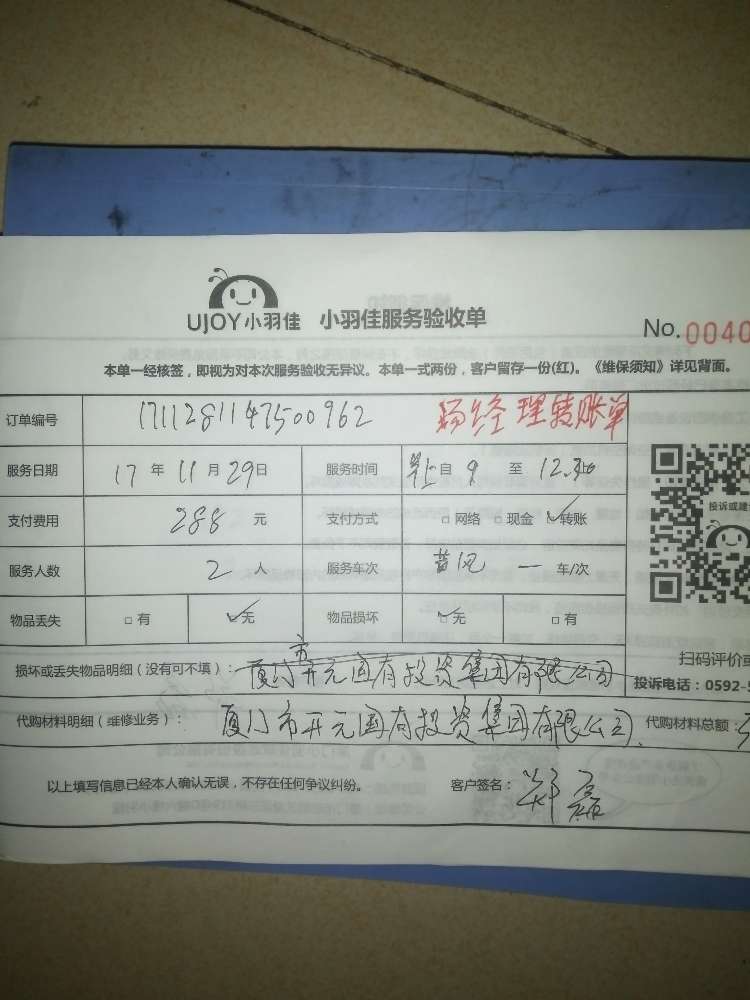 UJOY小羽佳 小羽佳服务验收单 No.0040
本单一经核签，即视为对本次服务验收无异议。本单一式两份，客户留存一份(红)。《维保须知》详见背面。
订单编号 1711281147500962 杨经理转账单
服务日期 17年11月29日 服务时间 自9至12.30
支付费用 288元 支付方式 □网络 □现金 ☑转账
投诉或建
服务人数 2人 服务车次 黄风 一 车/次
物品丢失 □有 ☑无 物品损坏 ☑无 □有
扫码评价或
损坏或丢失物品明细（没有可不填）：厦门市开元国有投资集团有限公司
投诉电话：0592-5
代购材料明细（维修业务）：厦门市开元国有投资集团有限公司 代购材料总额：
以上填写信息已经本人确认无误，不存在任何争议纠纷。 客户签名：郑磊